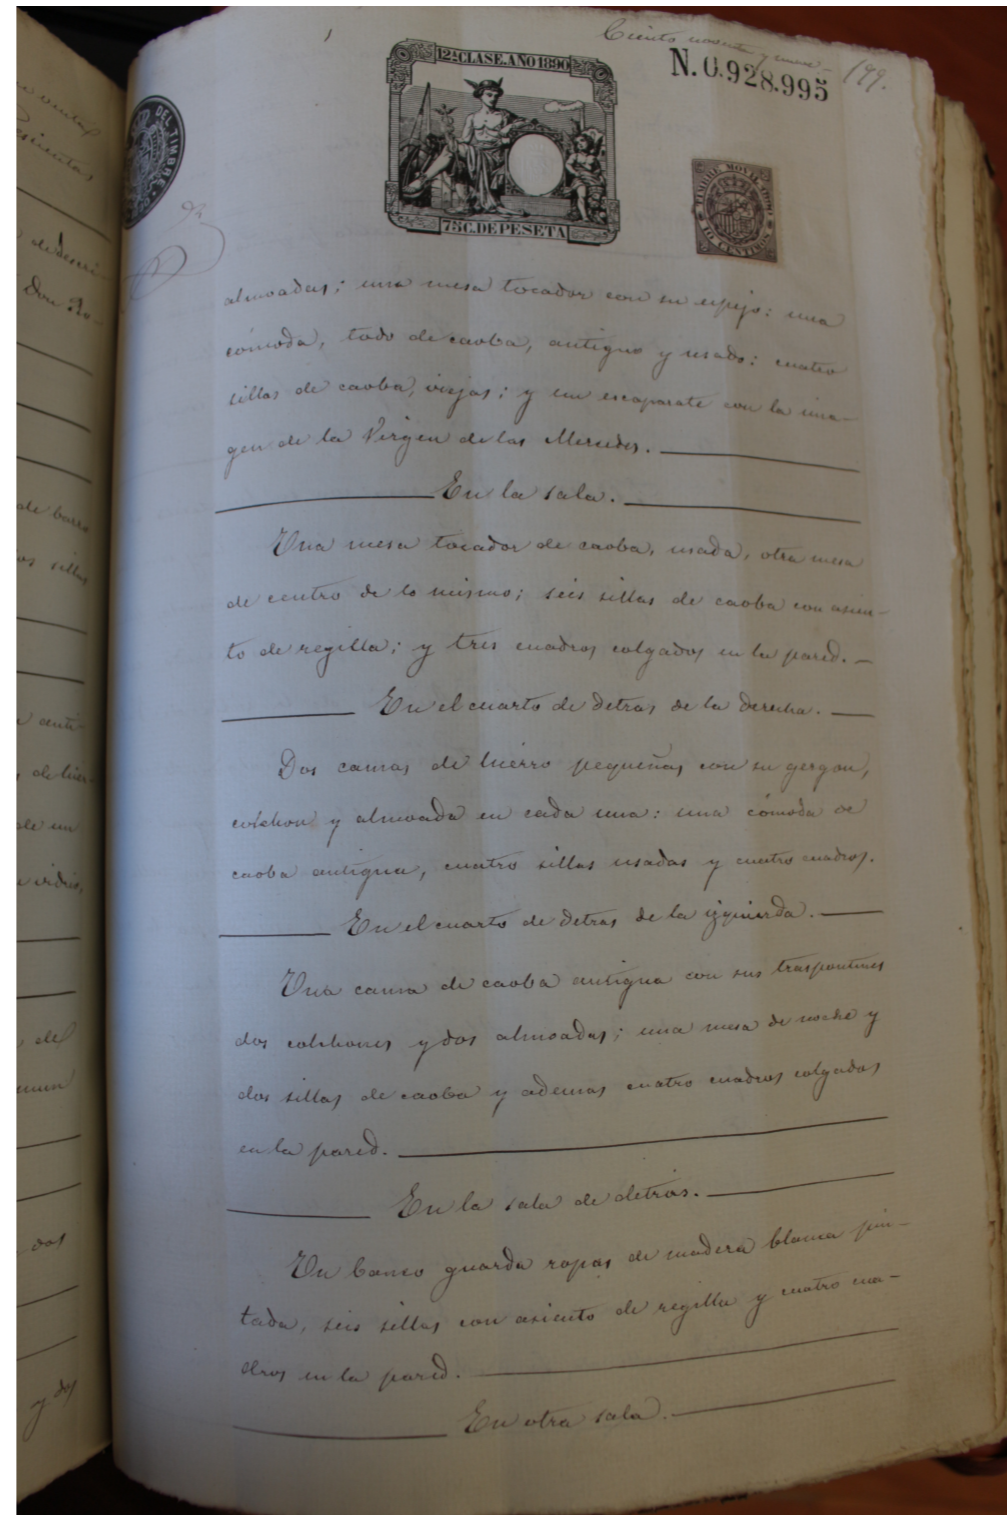 Ciento noventa y nueve - 199.
12ª CLASE. AÑO 1890
N. 0.928.995
DEL TIMBRE
TIMBRE MOVIL 1890
10 CENTIMOS
75 C. DE PESETA
almoadas; una mesa tocador con su espejo: una
cómoda, todo de caoba, antiguo y usado: cuatro
sillas de caoba, viejas; y un escaparate con la ima-
gen de la Virgen de las Mercedes.
En la sala.
Una mesa tocador de caoba, usada, otra mesa
de centro de lo mismo; seis sillas de caoba con asien-
to de regilla; y tres cuadros colgados en la pared.
En el cuarto de detras de la derecha.
Dos camas de hierro pequeñas con su gergon,
colchon y almoada en cada una: una cómoda de
caoba antigua, cuatro sillas usadas y cuatro cuadros.
En el cuarto de detras de la izquierda.
Una cama de caoba antigua con sus traspontines
dos colchones y dos almoadas; una mesa de noche y
dos sillas de caoba y ademas cuatro cuadros colgados
en la pared.
En la sala de detrás.
Un banco guarda ropas de madera blanca pin-
tada, seis sillas con asiento de regilla y cuatro cua-
dros en la pared.
En otra sala.